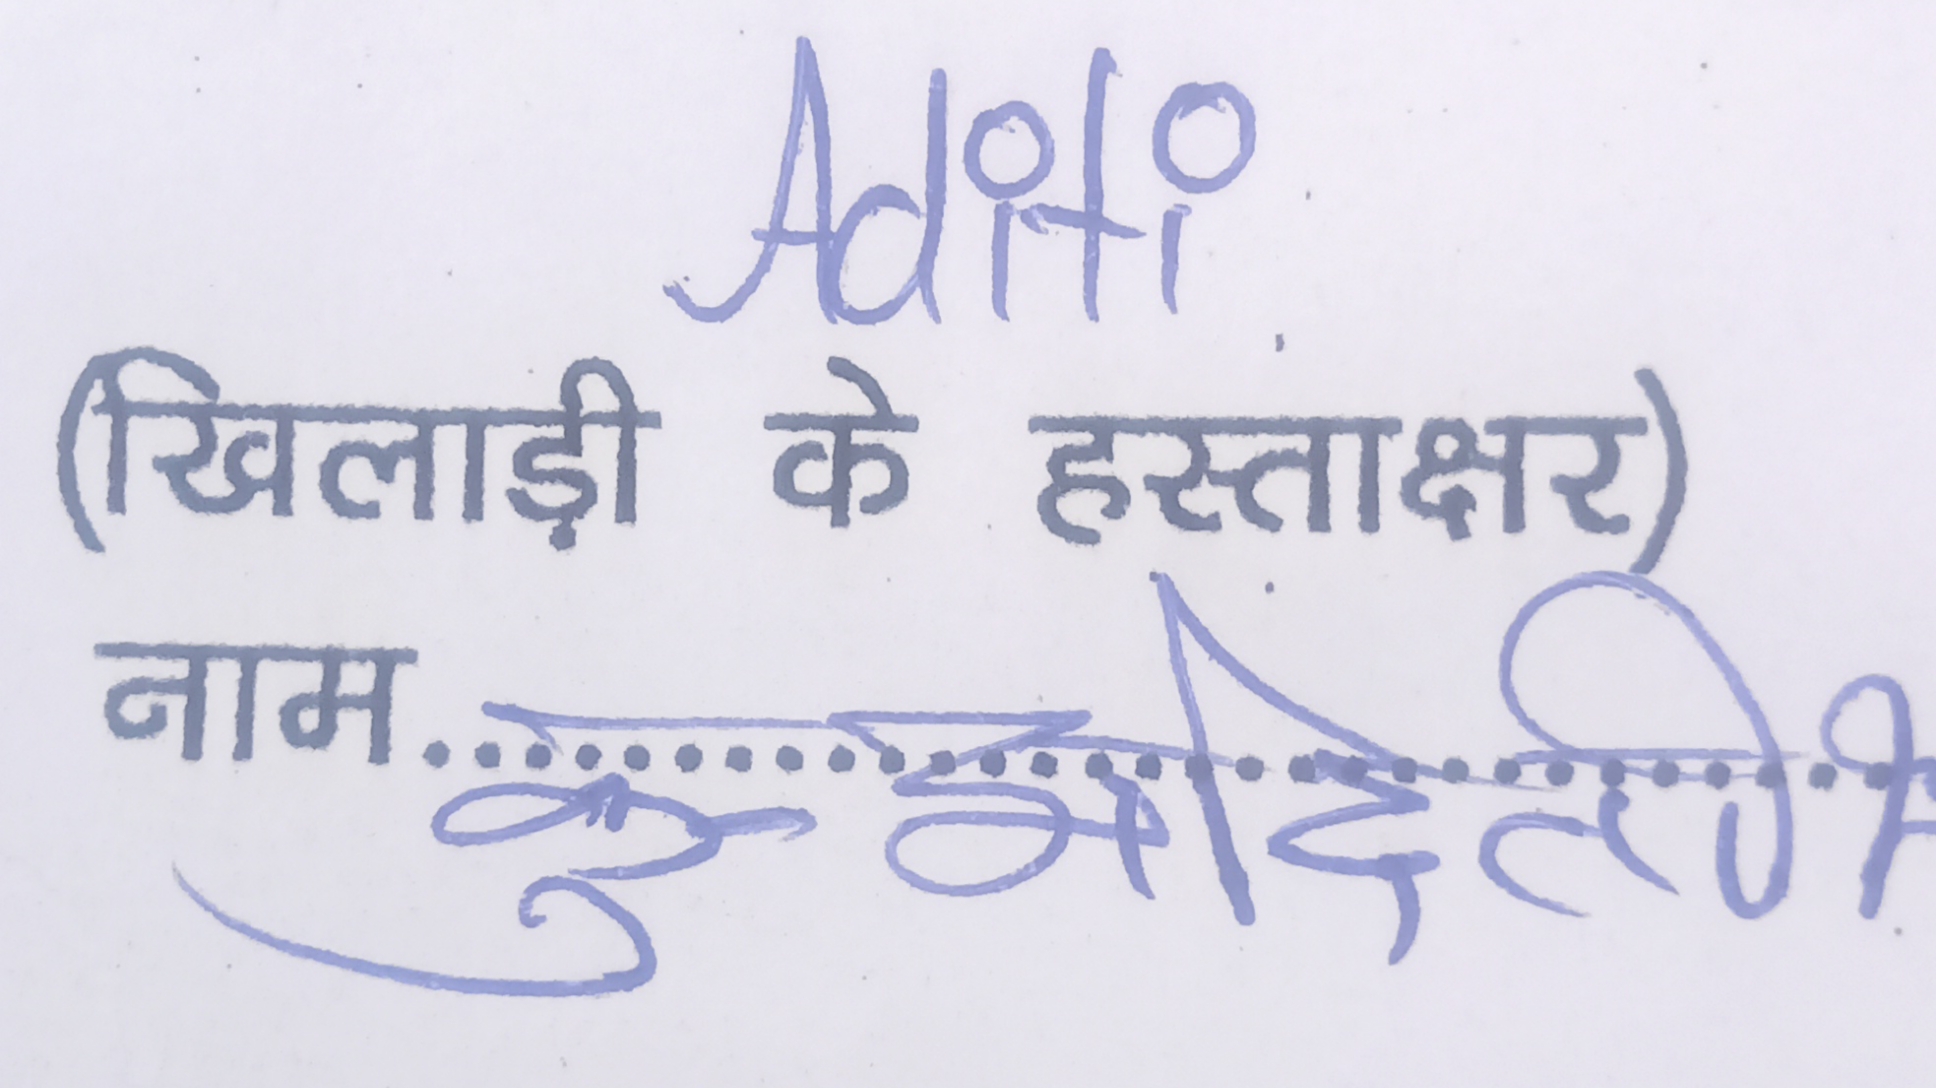 Aditi
(खिलाड़ी के हस्ताक्षर)
नाम.............................. कु अदिती